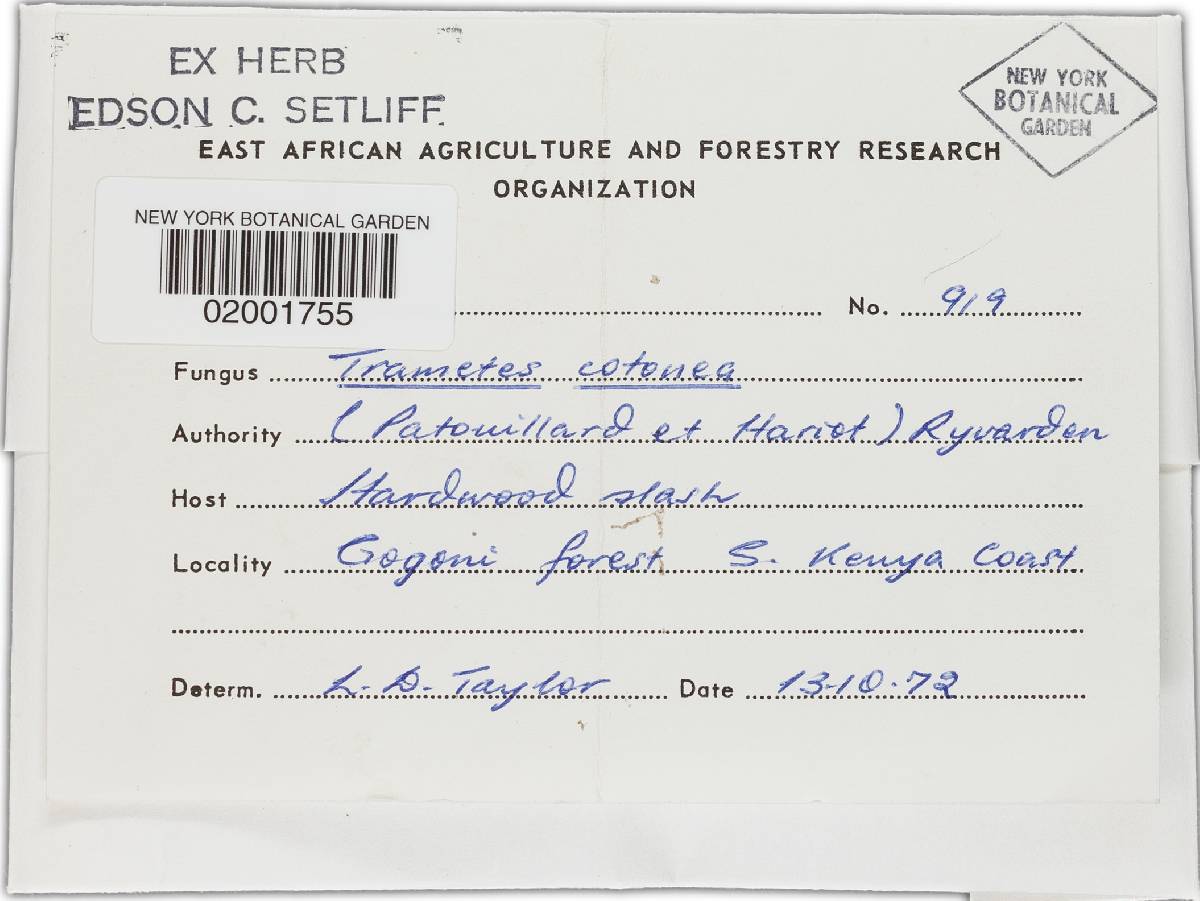 EX HERB
EDSON C. SETLIFF
NEW YORK
BOTANICAL
GARDEN
EAST AFRICAN AGRICULTURE AND FORESTRY RESEARCH
ORGANIZATION
NEW YORK BOTANICAL GARDEN
02001755
No. 919
Fungus Trametes cotonea
Authority (Patouillard et Hariot) Ryvarden
Host Hardwood slash
Locality Gogoni forest S. Kenya Coast
Determ. L. D. Taylor Date 13-10-72